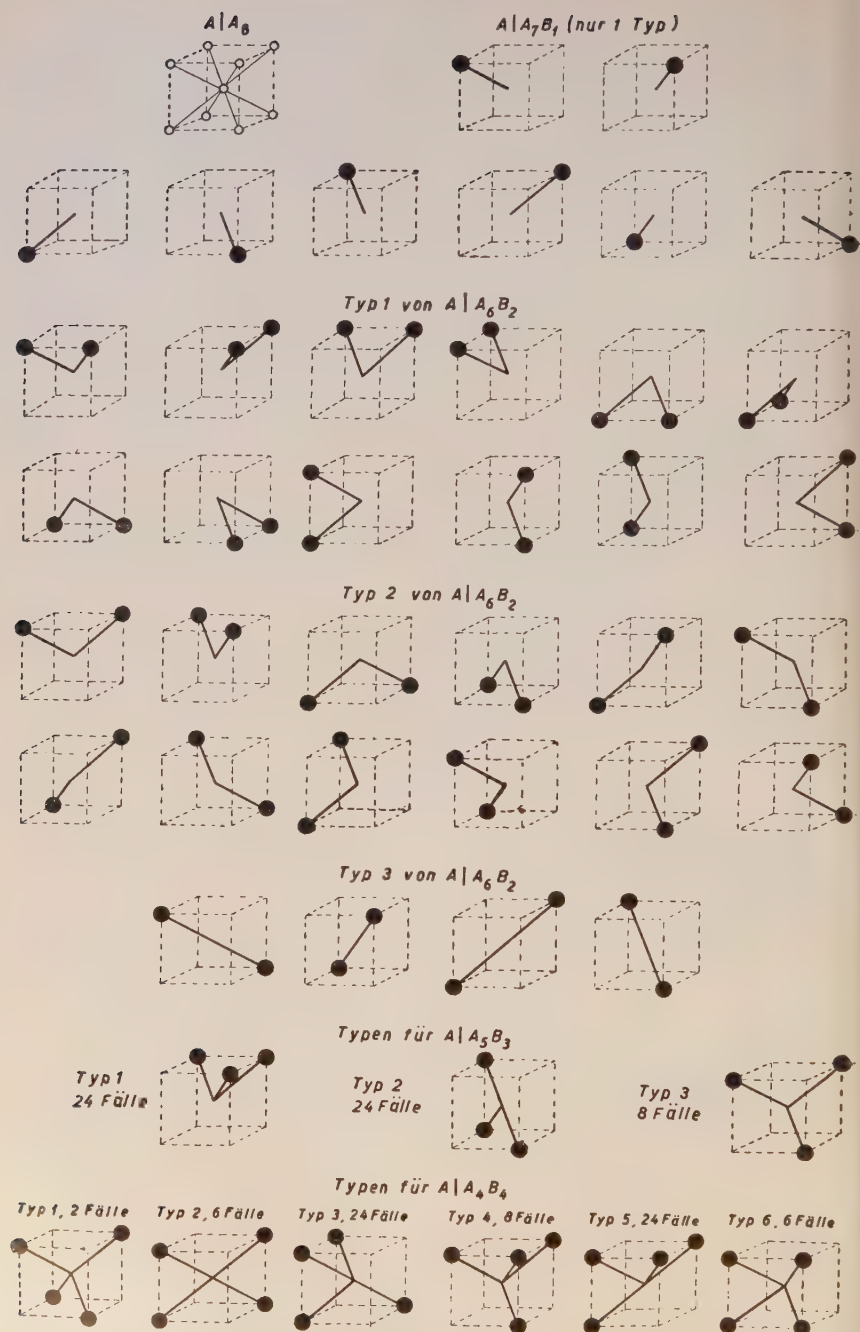 A|A₈
A|A₇B₁ (nur 1 Typ)
Typ1 von A|A₆B₂
Typ 2 von A|A₆B₂
Typ 3 von A|A₆B₂
Typen für A|A₅B₃
Typ1
24 Fälle
Typ 2
24 Fälle
Typ 3
8 Fälle
Typen für A|A₄B₄
Typ 1, 2 Fälle
Typ 2, 6 Fälle
Typ 3, 24 Fälle
Typ 4, 8 Fälle
Typ 5, 24 Fälle
Typ 6, 6 Fälle